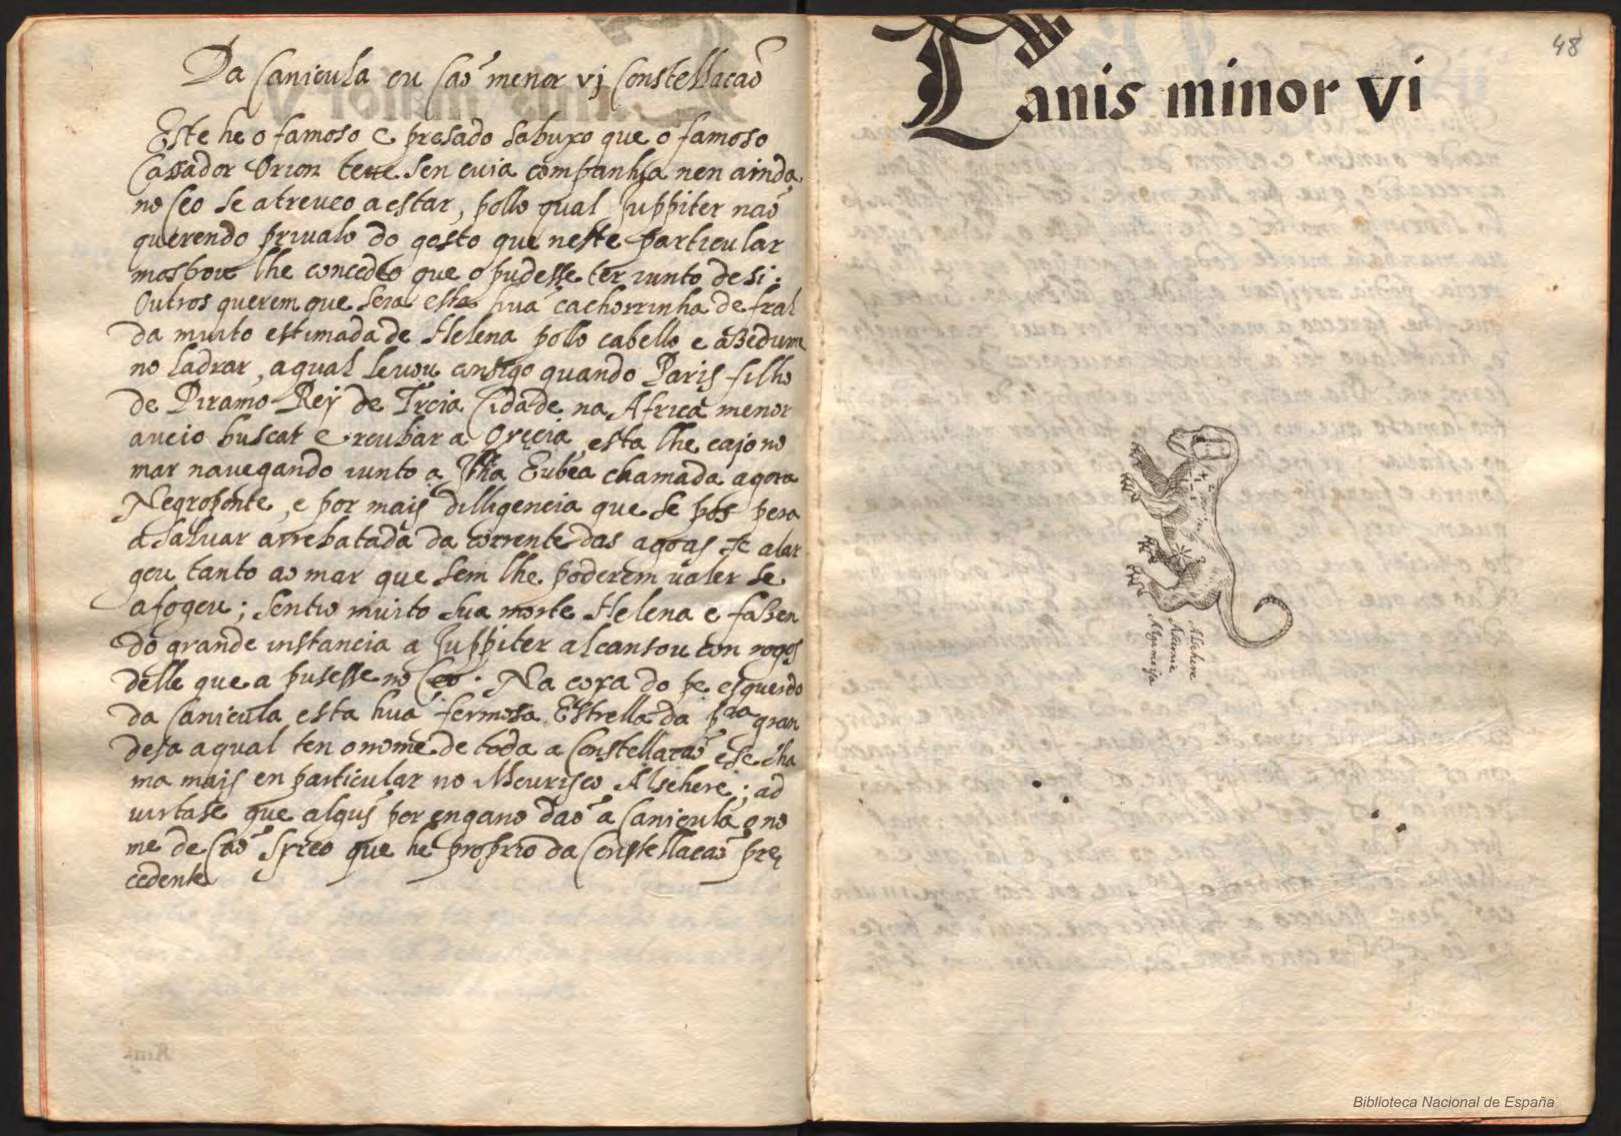 Da Canicula ou Caõ menor vj Constellacaõ
Este he o famoso e presado sabuxo que o famoso
Cassador Orion teue sen cuia companhia nen ainda
no Ceo se atreueo a estar, pollo qual Juppiter naõ
querendo priualo do gosto que neste particular
mostrou lhe concedeo que o pudesse ter iunto de si.
Outros querem que seia esta huá cachorrinha de fral
da muito estimada de Helena pollo cabello e
no ladrar, a qual leuou consigo quando Paris filho
de Piramo Rey de Troia Cidade na Africa menor
aueio buscar e roubar a Grecia, esta lhe cajo no
mar navegando iunto a Ilha Eubea chamada agora
Negroponte, e por mais dilligencia que se pos pera
a saluar arrebatada da corrente das agoas se alar
gou tanto ao mar que sem lhe poderem ualer se
afogou; sentio muito sua morte Helena e faZen
do grande instancia a Juppiter alcansou con rogos
delle que a pusesse no Ceo. Na coxa do pe esquerdo
da Canicula esta hua fermosa Estrella da pra gran
desa a qual ten o nome de toda a Constellacaõ e se cha
ma mais en particular no Mourisco Alsehere; ad
uirtase que algus por engano daõ a Canicula o no
me de Caõ Sirio que he proprio da Constellacaõ pre
cedente
48
Canis minor vi
Alsehere
Algumeisa
Biblioteca Nacional de España